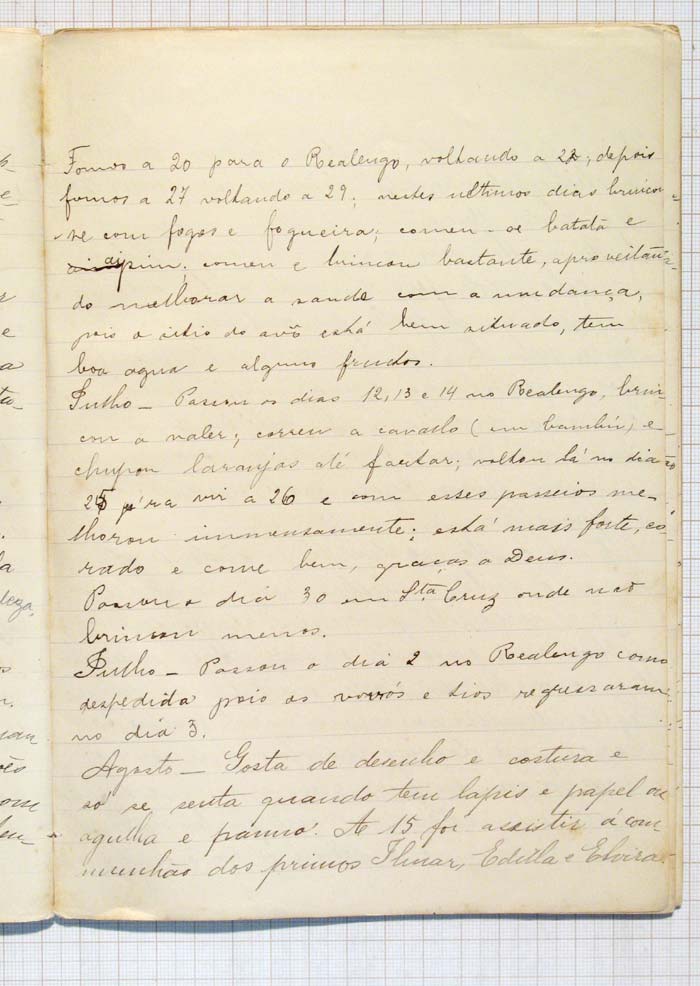 Fomos a 20 para o Realengo, voltando a 22; depois
fomos a 27 voltando a 29; nestes ultimos dias brincou-
se com fogos e fogueira; comeu-se batata e
aipim; comeu e brincou bastante, aproveitan-
do melhorar a saude com a mudança,
pois o sitio do avô está bem situado, tem
boa agua e alguns frutos.
Julho - Passou os dias 12, 13 e 14 no Realengo, brin-
cou a valer; correu a cavallo (em bambú) e
chupou laranjas até fartar; voltou lá no dia
25 p'ra vir a 26 e com esses passeios me-
lhorou immensamente; está mais forte, co-
rado e come bem, graças a Deus.
Passou o dia 30 em Sta. Cruz onde não
brincou menos.
Julho - Passou o dia 2 no Realengo como
despedida pois os vovós e tios regressaram
no dia 3.
Agosto - Gosta de desenho e costura e
só se senta quando tem lapis e papel ou
agulha e panno. A 15 foi assistir á com-
munhão dos primos Ilmar, Editla e Elvira.